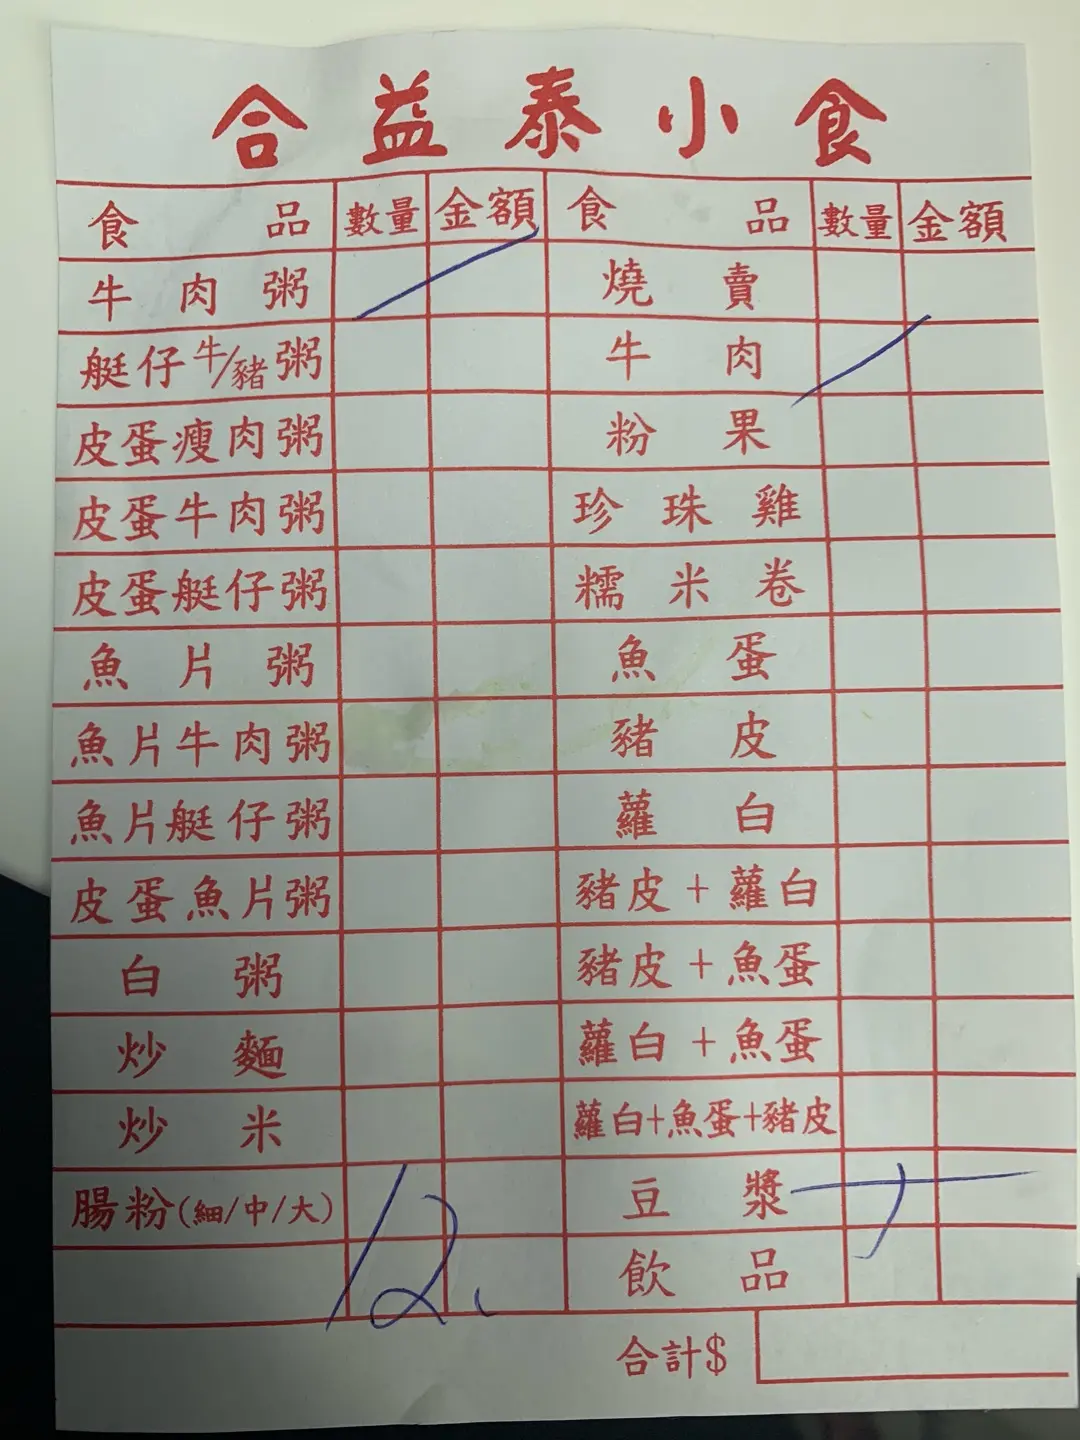 合益泰小食
食品 數量 金額 食品 數量 金額
牛肉粥 燒賣
艇仔牛/豬粥 牛肉
皮蛋瘦肉粥 粉果
皮蛋牛肉粥 珍珠雞
皮蛋艇仔粥 糯米卷
魚片粥 魚蛋
魚片牛肉粥 豬皮
魚片艇仔粥 蘿白
皮蛋魚片粥 豬皮+蘿白
白粥 豬皮+魚蛋
炒麵 蘿白+魚蛋
炒米 蘿白+魚蛋+豬皮
腸粉(細/中/大) 豆漿
12. 飲品
合計$